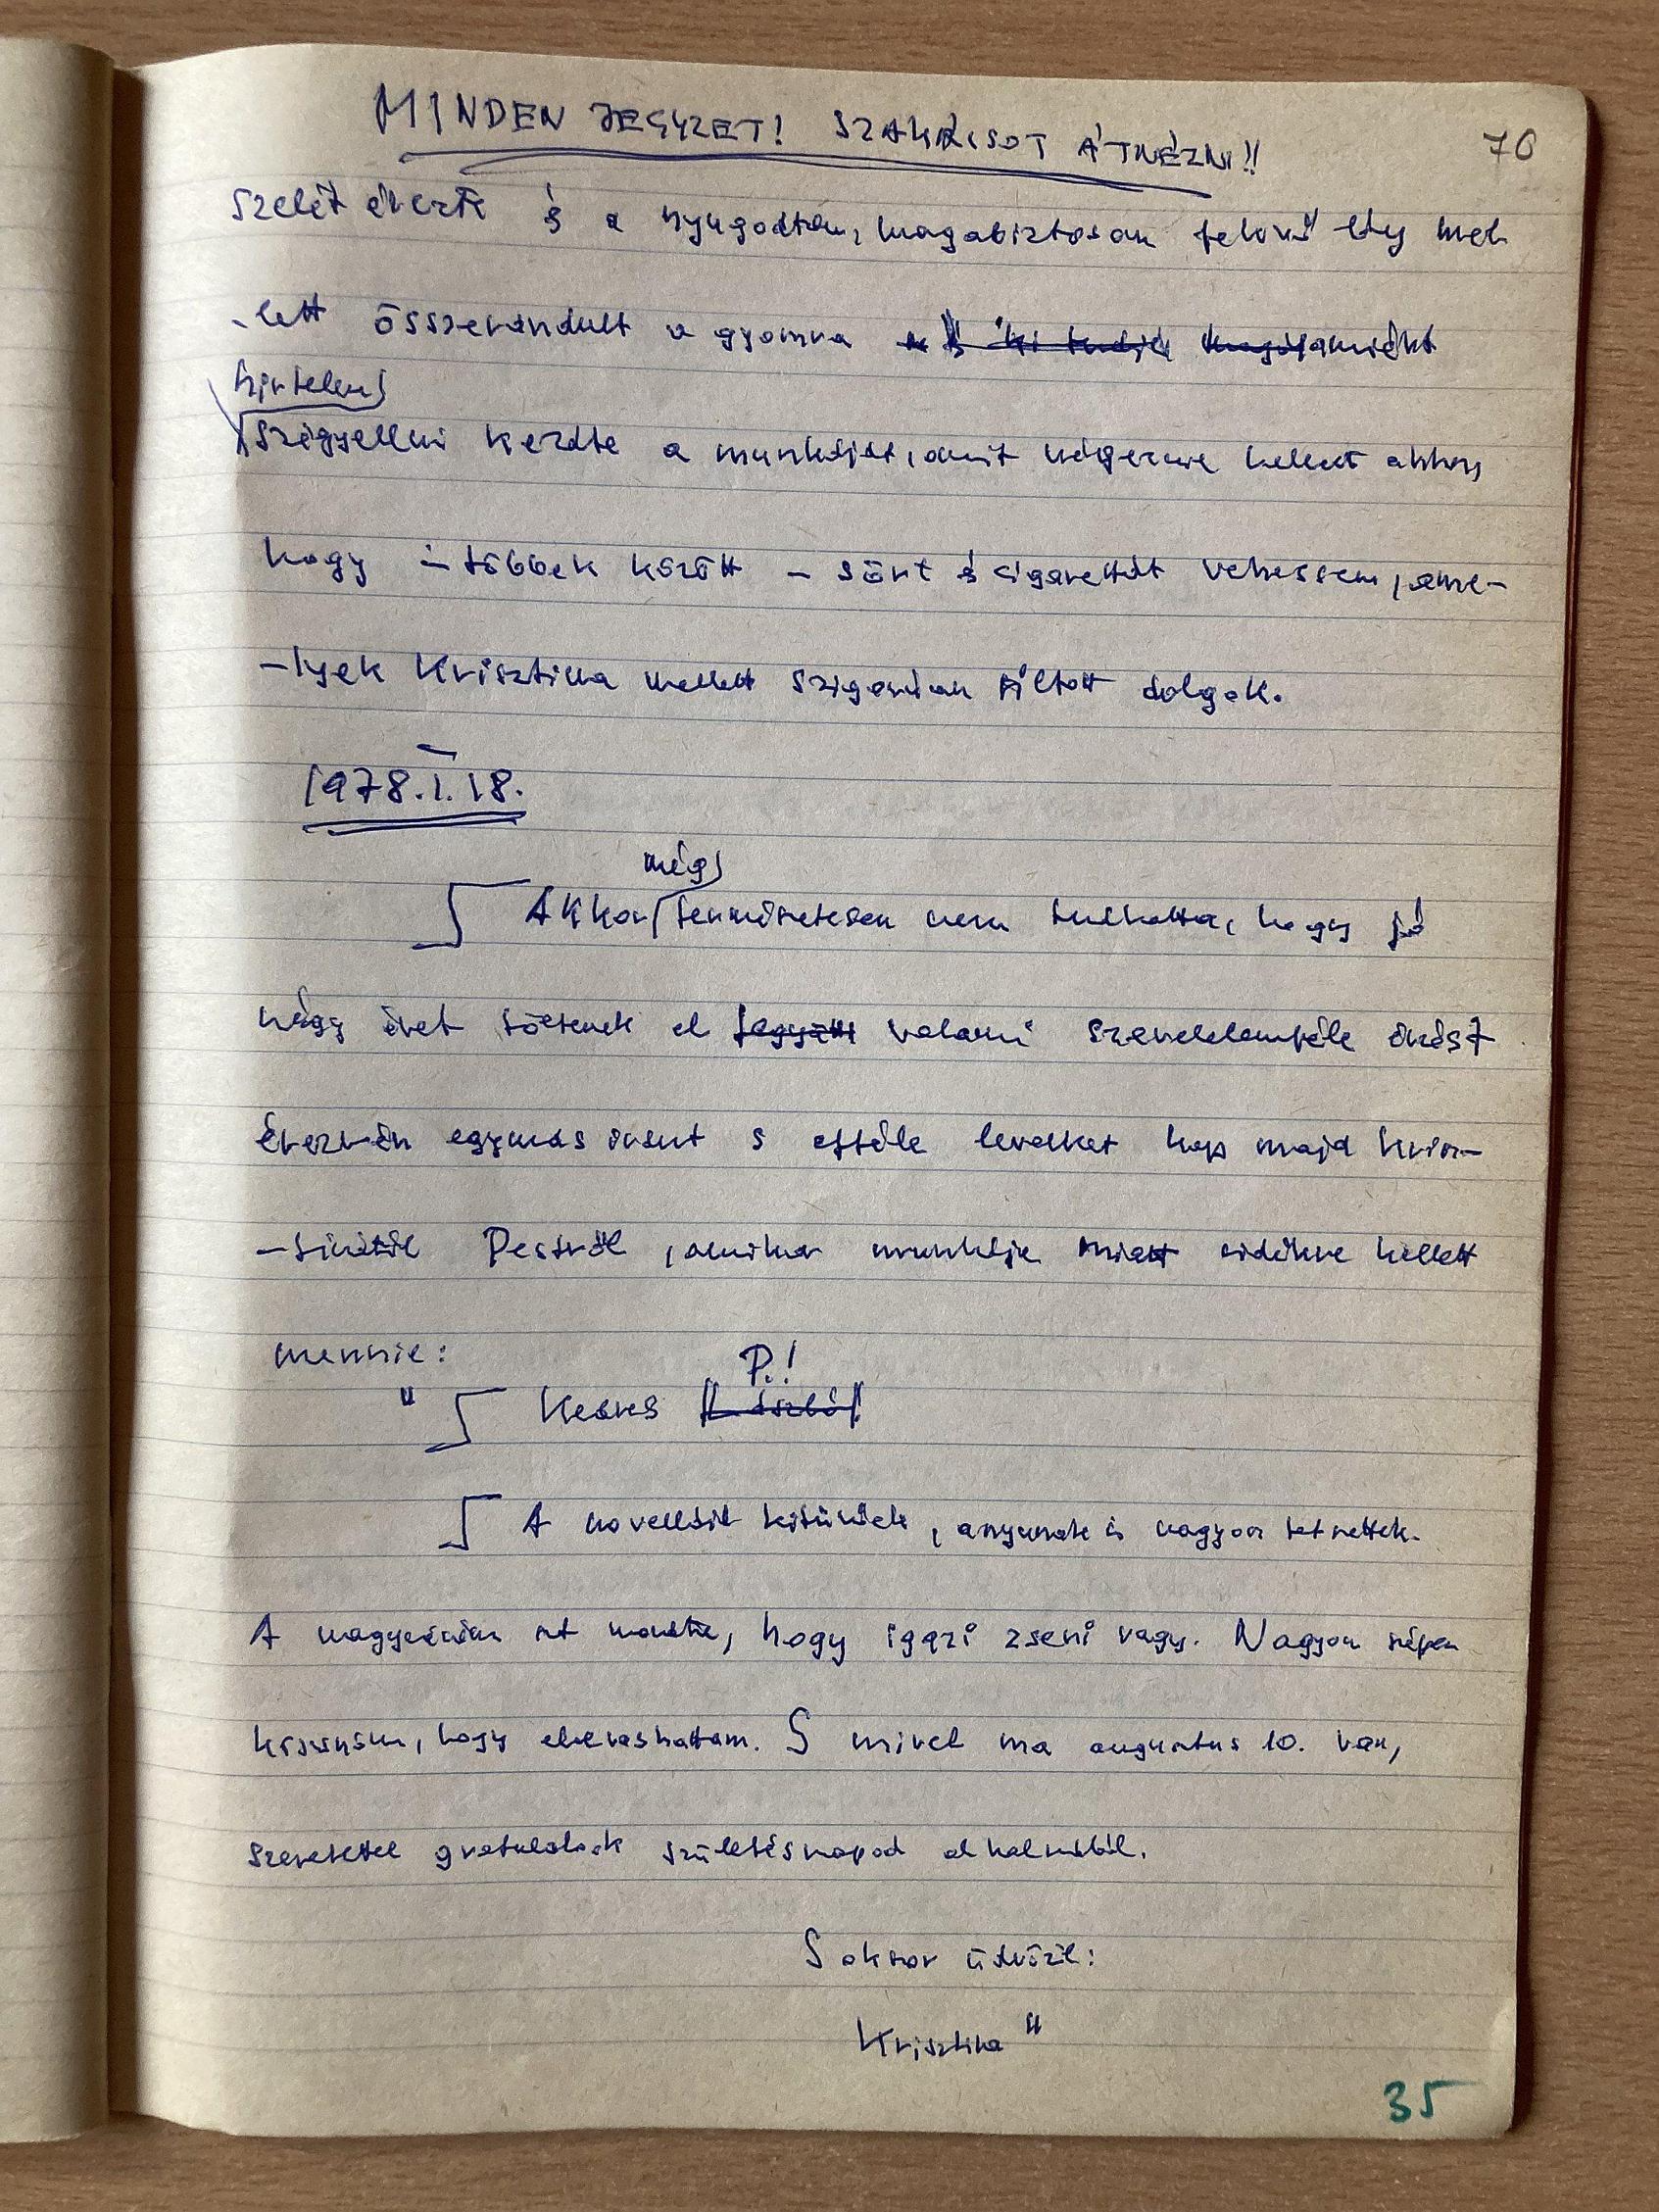 MINDEN JEGYZET! SZAKKÖRISOT ÁTNÉZNI!!
70
szelét érezte s a nyugodtan, magabiztosan fekvő lány mel-
-lett összerándult a gyomra s ki tudja amiért
hirtelen
szégyellni kezdte a munkáját, amit végeznie kellett ahhoz,
hogy – többek között – sört s cigarettát vehessen, ame-
-lyek Krisztina mellett szigorúan tiltott dolgok.
1978.I.18.
még
Akkor természetesen nem tudhatta, hogy jó
négy évet töltenek el együtt valami szerelemféle érzést
érezvén egymás iránt s efféle leveleket kap majd Krisz-
-tinától Pestről, amikor munkája miatt vidékre kellett
mennie:
P.!
" Kedves László!
A novelláid kitűnőek, anyunak is nagyon tetszettek.
A nagymamám azt mondta, hogy igazi zseni vagy. Nagyon szépen
köszönöm, hogy elolvashattam. S mivel ma augusztus 10. van,
szeretettel gratulálok születésnapod alkalmából.
Sokszor üdvözöl:
Krisztina"
35